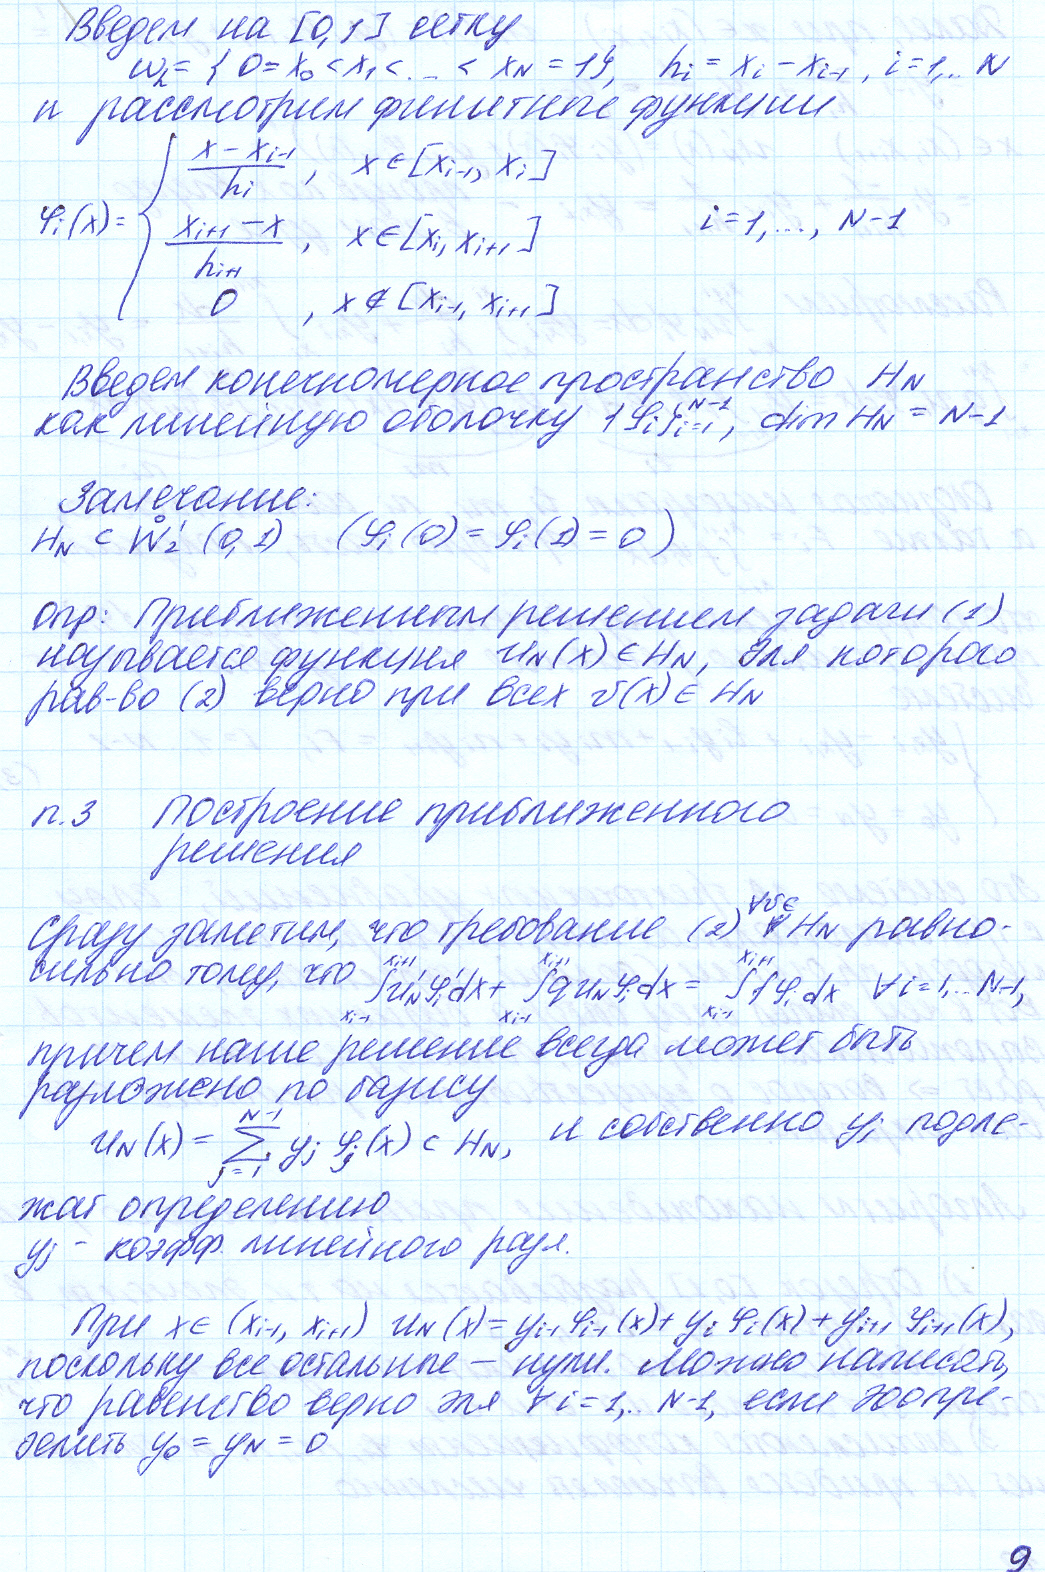 Введем на [0,1] сетку
ω_h = { 0 = x_0 < x_1 < ... < x_N = 1 }, h_i = x_i − x_{i-1}, i = 1,.. N
и рассмотрим финитные функции
φ_i(x) = { (x − x_{i-1})/h_i , x ∈ [x_{i-1}, x_i]
(x_{i+1} − x)/h_{i+1} , x ∈ [x_i, x_{i+1}] i = 1, ..., N−1
0 , x ∉ [x_{i-1}, x_{i+1}]
Введем конечномерное пространство H_N
как линейную оболочку {φ_i}_{i=1}^{N−1}, dim H_N = N−1
Замечание:
H_N ⊂ W̊_2^1 (0,1) (φ_i(0) = φ_i(1) = 0)
Опр: Приближенным решением задачи (1)
называется функция u_N(x) ∈ H_N, для которого
рав-во (2) верно при всех v(x) ∈ H_N
п.3 Построение приближенного
решения
Сразу заметим, что требование (2) ∀v ∈ H_N равно-
сильно тому, что ∫_{x_{i-1}}^{x_{i+1}} u'_N φ'_i dx + ∫_{x_{i-1}}^{x_{i+1}} q u_N φ_i dx = ∫_{x_{i-1}}^{x_{i+1}} f φ_i dx ∀ i = 1,.. N−1,
причем наше решение всегда может быть
разложено по базису
u_N(x) = ∑_{j=1}^{N−1} y_j φ_j(x) ⊂ H_N, и собственно y_j подле-
жат определению
y_j − коэфф. линейного разл.
При x ∈ (x_{i-1}, x_{i+1}) u_N(x) = y_{i-1} φ_{i-1}(x) + y_i φ_i(x) + y_{i+1} φ_{i+1}(x),
поскольку все остальные − нули. Можно написать,
что равенство верно для ∀ i = 1,.. N−1, если доопре-
делить y_0 = y_N = 0
9